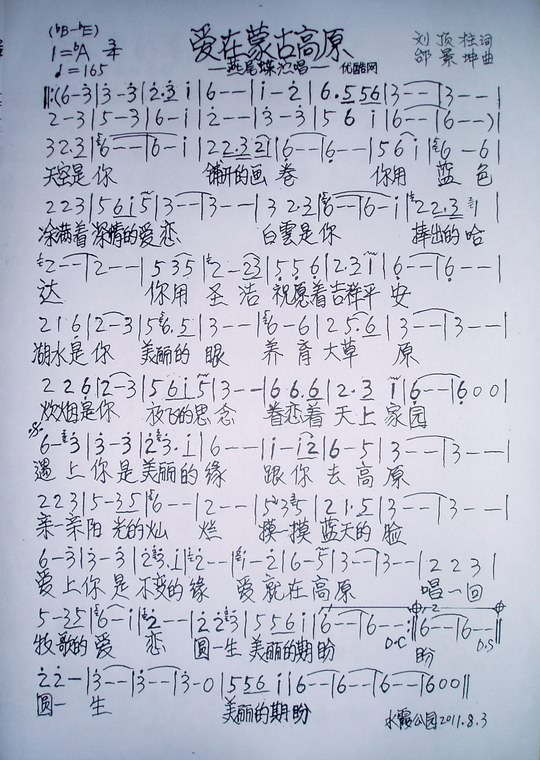 (♭B-♭E)
1=♭A 3/4
♩=165
爱在蒙古高原
—燕尾蝶演唱— 优酷网
刘顶柱词
邰景坤曲
‖:(6-3|3-3|2·3 i|6--|i-2|6·5 56|3--|3--|
2-3|5-3|6-i|2--|3-3|5 6 i|6--|6--)|
32·3|6--|6-i|22·32|6--|6--|56i|6-6|
天空是你 铺开的画卷 你用 蓝色
223|56i5|3--|3--|3 2·3|6--|6-i|22·3 1|
涂满着深情的爱恋 白雲是你 捧出的哈
2--|2--|535|2-23|556|2·3 i|6--|6--|
达 你用圣洁祝愿着吉祥平安
216|2-3|56·5|3--|6-6|25·6|3--|3--|
湖水是你 美丽的眼 养育大草原
226|2-3|56i5|3--|66·6|2·3 i|6--|600|
炊烟是你 放飞的思念 眷恋着天上家园
6-3|3-3|23·i|6--|i-i2|6-5|3--|3--|
遇上你是美丽的缘 跟你去高原
223|5-35|6--|2--|535|21·5|3--|3--|
亲一亲阳光的灿烂 摸一摸蓝天的脸
6-3|3-3|23·i|2--|i-2|6-5|3--|3--|2231|
爱上你是不变的缘 爱就在高原 唱一回
5-35|6-i|2--|223|556i|6--|6--:‖6--|6--‖
牧歌的爱恋 圆一生美丽的期盼 D·C 盼 D.S
22-|3--|3--|3-0|556 i|6--|6--|6--|600‖
圆一生 美丽的期盼 水霞公园2011.8.3